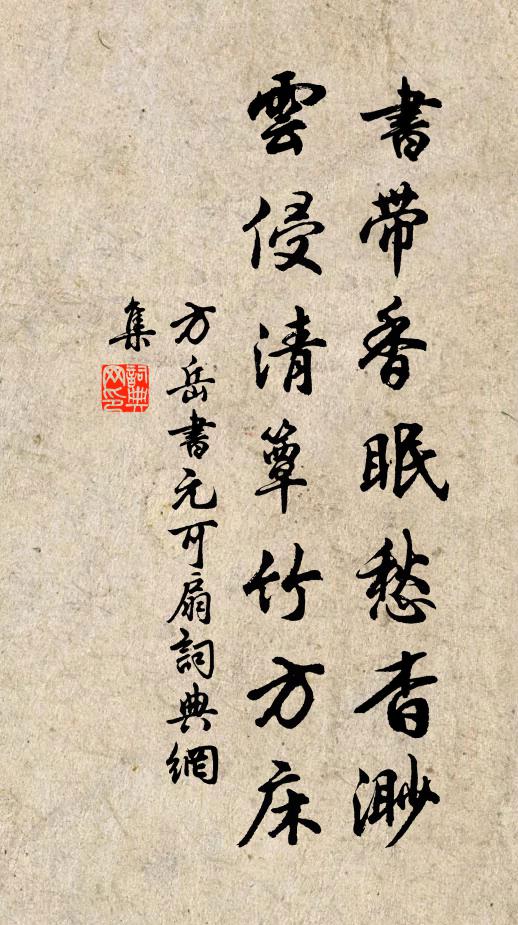 書帶香眠愁杳渺
雲侵清簟竹方床
方岳書元可扇詞典網
集
詞典
網印